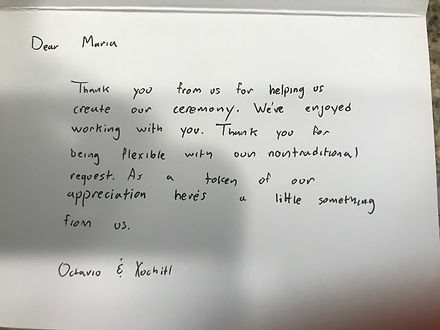 Dear Maria
Thank you from us for helping us
create our ceremony. We've enjoyed
working with you. Thank you for
being flexible with our nontraditional
request. As a token of our
appreciation here's a little something
from us.
Octavio & Xochitl